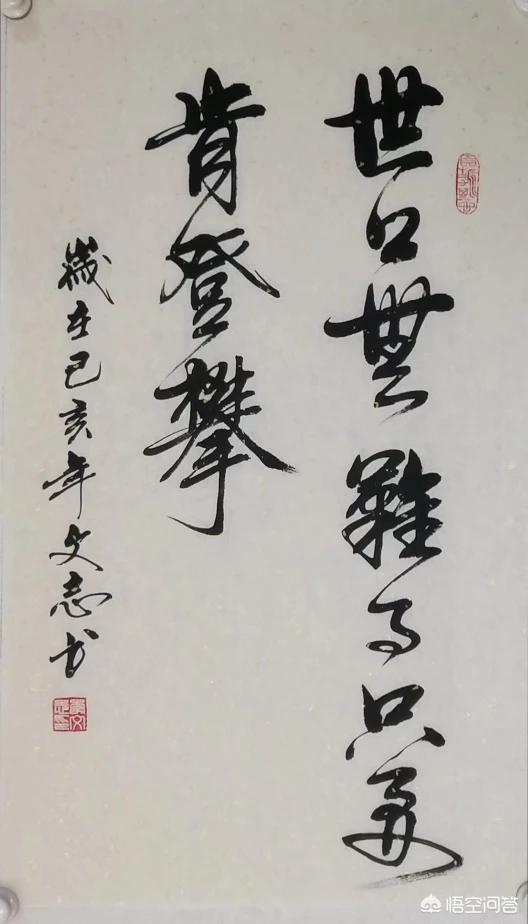 世上無難事只要
肯登攀
歲在己亥年文志书
悟空问答